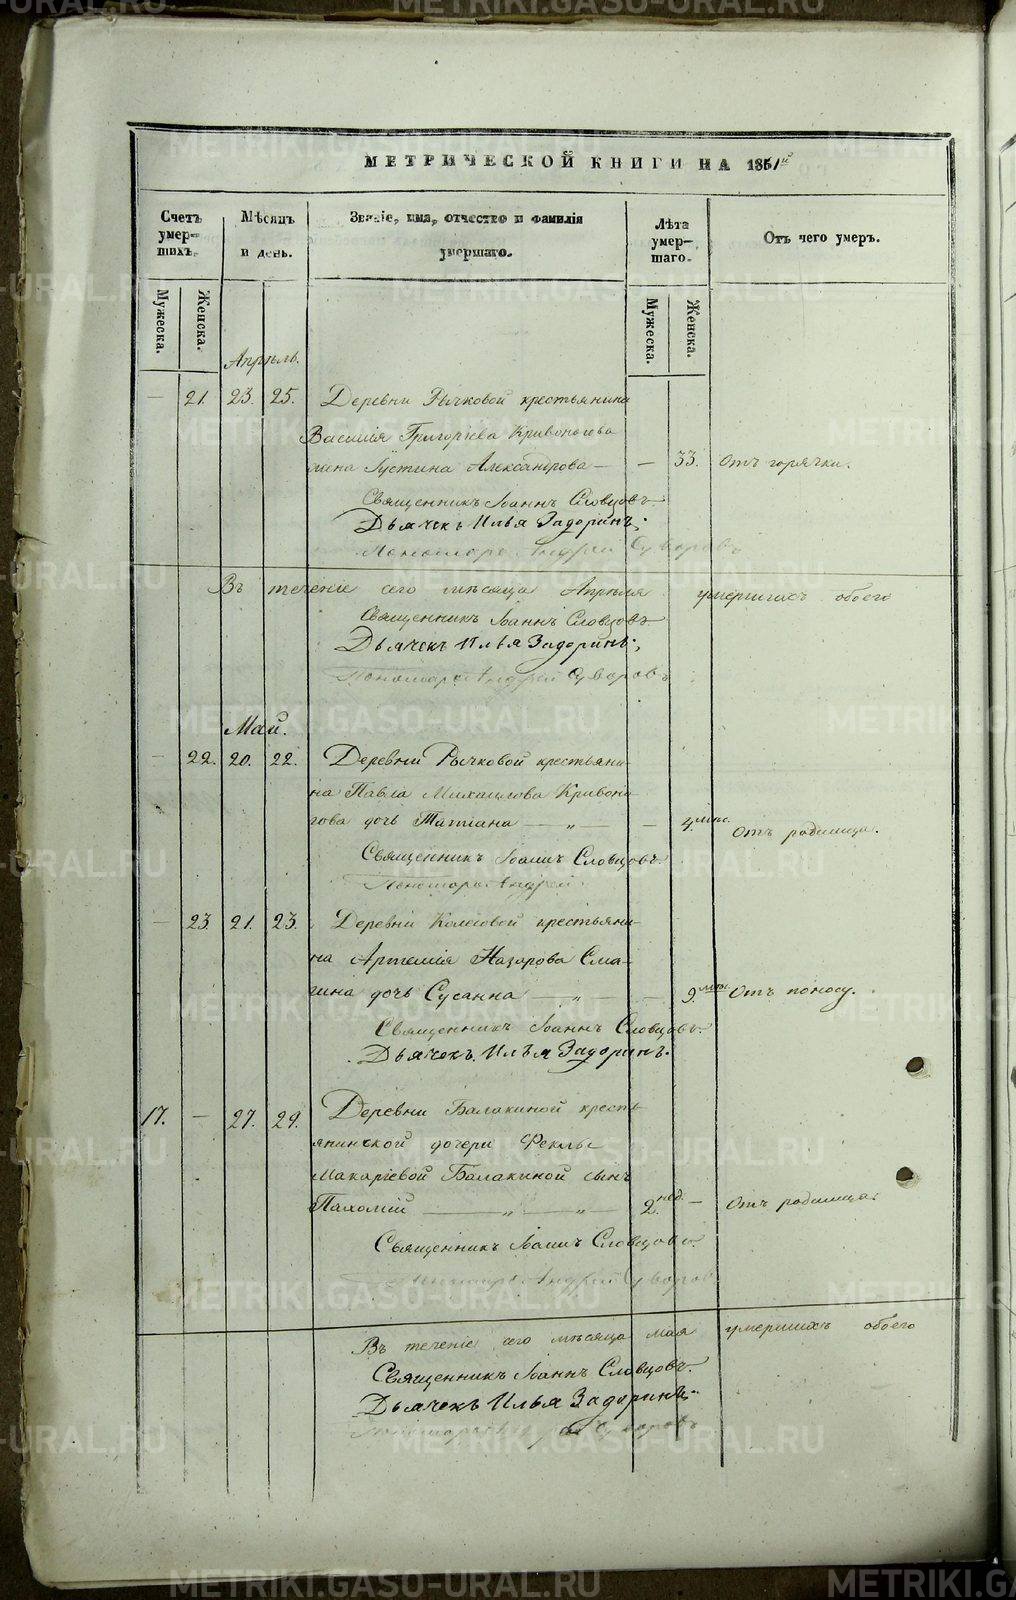 МЕТРИЧЕСКОЙ КНИГИ НА 1851й
Счетъ умер-шихъ.
Мѣсяцъ и день.
Званіе, имя, отчество и фамилія умершаго.
Лѣта умер-шаго.
Отъ чего умеръ.
Мужеска.
Женска.
Мужеска.
Женска.
Апрѣль.
— 21. 23. 25. Деревни Рычковой крестьянина
Василія Григоріева Кривоногова
жена Іустина Александрова — — 33. Отъ горячки.
Священникъ Іоаннъ Словцовъ.
Дьячекъ Илья Задоринъ;
Пономарь Андрей Суворовъ
Въ теченіе сего мѣсяца Апрѣля умершихъ обоего
Священникъ Іоаннъ Словцовъ
Дьячекъ Илья Задоринъ;
Пономарь Андрей Суворовъ
Май.
— 22. 20. 22. Деревни Рычковой крестьяни-
на Павла Михаилова Кривоно
гова дочь Татіана — „ — — 4. мѣс. Отъ родимца.
Священникъ Іоаннъ Словцовъ.
Пономарь Андрей
— 23. 21. 23. Деревни Колесовой крестьяни-
на Артемія Назарова Сма-
гина дочь Сусанна — „ — — 9. мѣс. Отъ поносу.
Священникъ Іоаннъ Словцовъ.
Дьячекъ Илья Задоринъ.
17. — 27. 29. Деревни Балакиной кресть
янинской дочери Феклы
Макаріевой Балакиной сынъ
Пахомій — „ — „ — 2. нед. — Отъ родимца.
Священникъ Іоаннъ Словцовъ.
Пономарь Андрей Суворовъ
Въ теченіе сего мѣсяца мая умершихъ обоего
Священникъ Іоаннъ Словцовъ.
Дьячекъ Илья Задоринъ.
Пономарь Суворовъ
METRIKI.GASO-URAL.RU